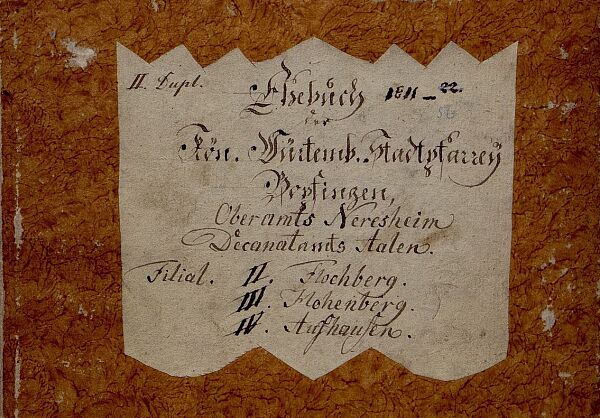 II. Dupl.
Ehebuch 1811 - 22.
der
Kön. Würtemb. Stadtpfarrey
Bopfingen,
Oberamts Neresheim
Decanatamts Aalen.
Filial. II. Flochberg.
III. Hohenberg.
IV. Aufhausen.